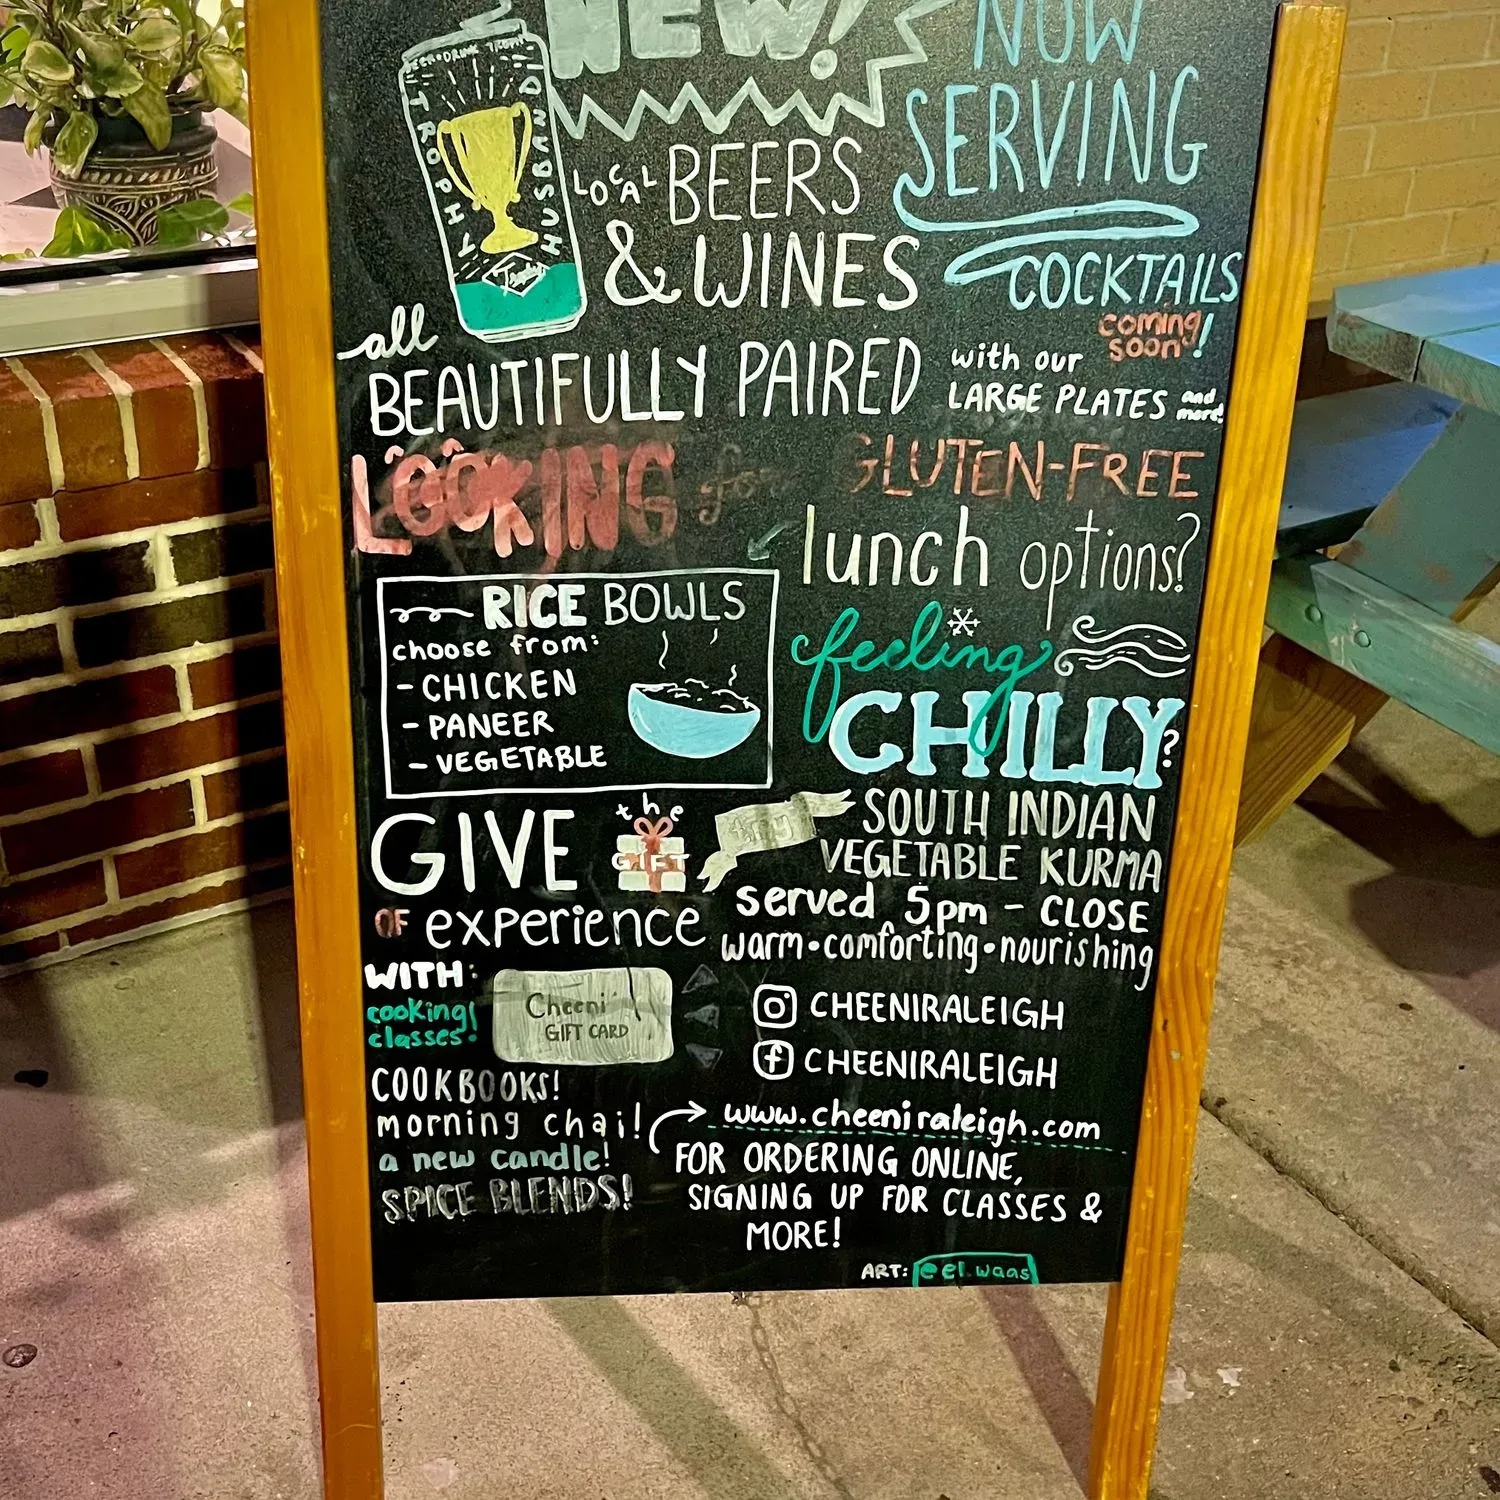 NEW!
NOW
SERVING
LOCAL BEERS
& WINES
COCKTAILS
coming soon!
TROPHY
HUSBAND
Trophy
all
BEAUTIFULLY PAIRED
with our
LARGE PLATES and more!
LOOKING for GLUTEN-FREE
lunch options?
RICE BOWLS
choose from:
- CHICKEN
- PANEER
- VEGETABLE
feeling
CHILLY?
try SOUTH INDIAN
VEGETABLE KURMA
served 5pm - CLOSE
warm • comforting • nourishing
GIVE the GIFT
OF experience
WITH:
cooking classes!
Cheeni
GIFT CARD
COOKBOOKS!
morning chai!
a new candle!
SPICE BLENDS!
CHEENIRALEIGH
CHEENIRALEIGH
www.cheeniraleigh.com
FOR ORDERING ONLINE,
SIGNING UP FOR CLASSES &
MORE!
ART: @el.waas